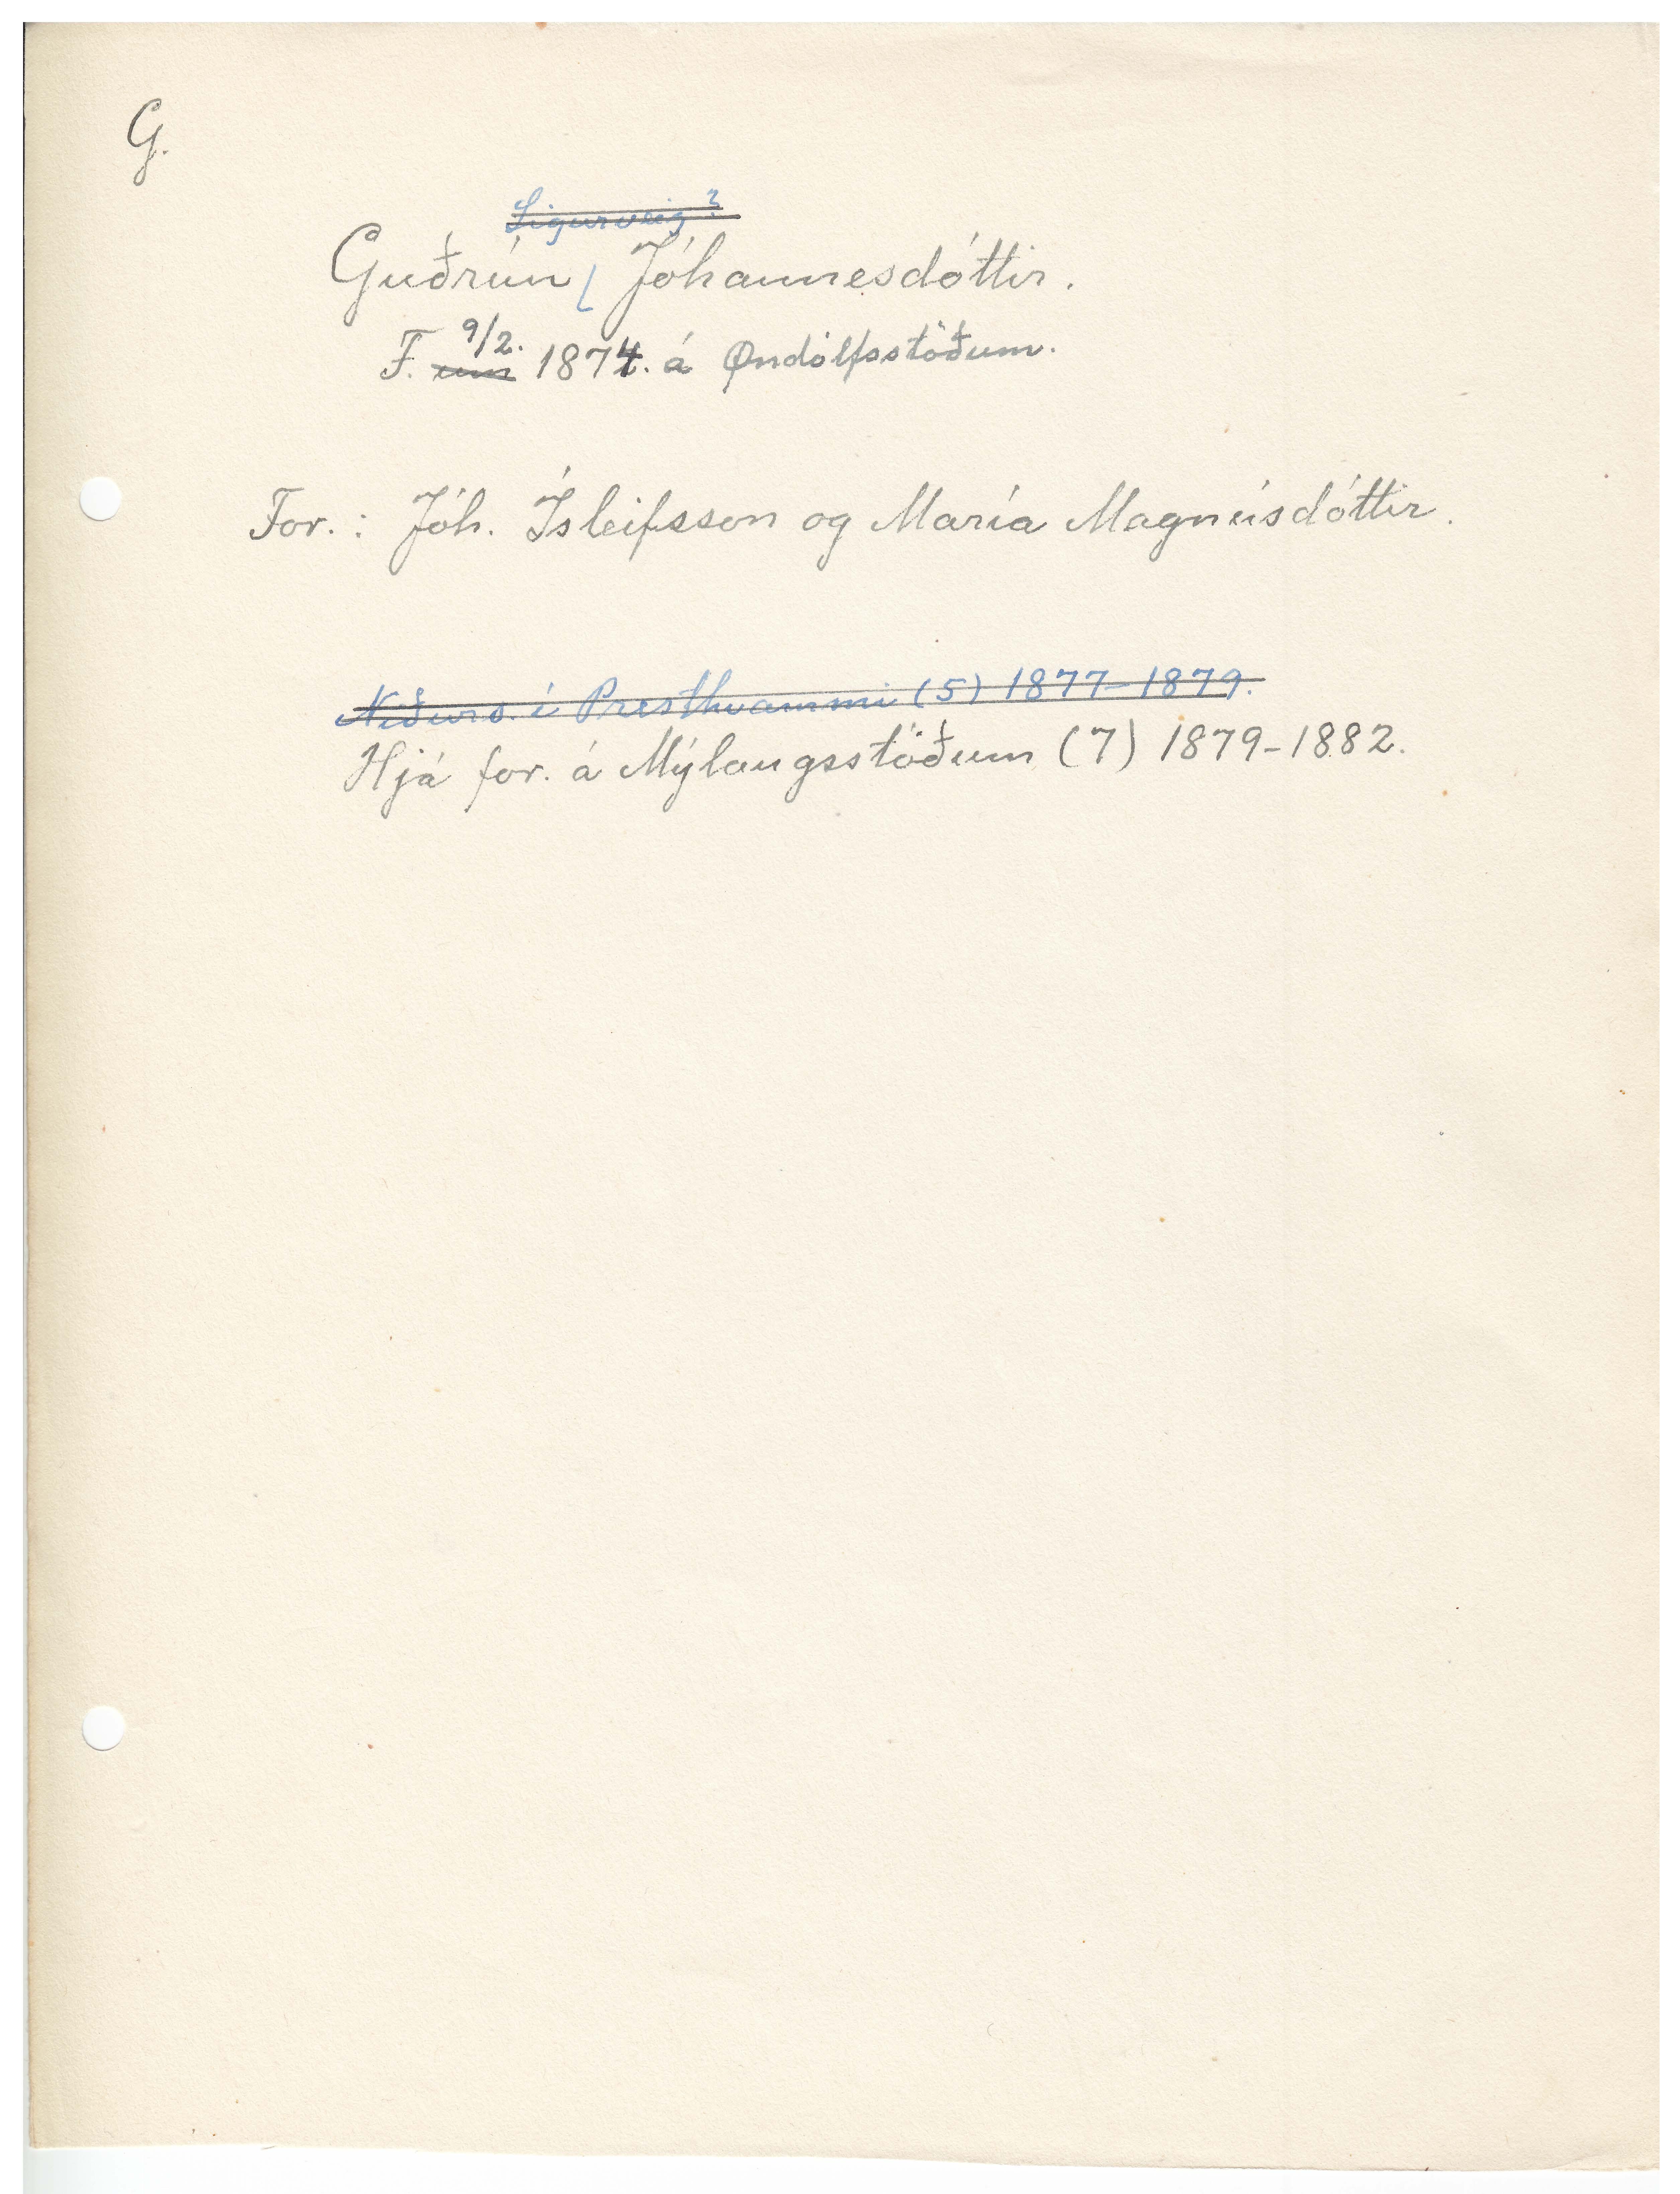 G.
Sigurveig?
Guðrún Jóhannesdóttir.
9/2.
F. um 1874. á Øndólfsstöðum.
For.: Jóh. Ísleifsson og María Magnúsdóttir.
Niðurs. í Presthvammi (5) 1877-1879.
Hjá for. á Mýlaugsstöðum (7) 1879-1882.